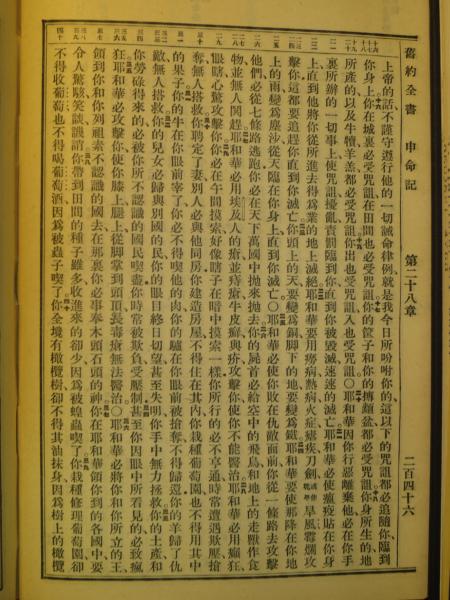 舊約全書 申命記 第二十八章 二百四十六
上帝的話不謹守遵行他的一切誡命律例就是我今日所吩咐你的這以下的咒詛都必追隨你臨到
你身上你在城裏必受咒詛在田間也必受咒詛你的筐子和你的摶麵盆都必受咒詛你身所生的地
所產的以及牛犢羊羔都必受咒詛你出也受咒詛入也受咒詛〇耶和華因你行惡離棄他必在你手
裏所辦的一切事上使咒詛擾亂責罰臨到你直到你被毀滅速速的滅亡耶和華必使瘟疫貼在你身
上直到他將你從所進去得爲業的地上滅絕耶和華要用癆病熱病火症瘧疾刀劍旱風霉爛攻
擊你這都要追趕你直到你滅亡你頭上的天要變爲銅脚下的地要變爲鐵耶和華要使那降在你地
上的雨變爲塵沙從天臨在你身上直到你滅亡〇耶和華必使你敗在仇敵面前你從一條路去攻擊
他們必從七條路逃跑你必在天下萬國中拋來拋去你的屍首必給空中的飛鳥和地上的走獸作食
物並無人鬨趕耶和華必用埃及人的瘡並痔瘡牛皮癬與疥攻擊你使你不能醫治耶和華必用癲狂
眼瞎心驚攻擊你你必在午間摸索好像瞎子在暗中摸索一樣你所行的必不亨通時常遭遇欺壓搶
奪無人搭救你你聘定了妻別人必與他同房你建造房屋不得住在其內你栽種葡萄園也不得用其中
的果子你的牛在你眼前宰了你必不得喫他的肉你的驢在你眼前被搶奪不得歸還你的羊歸了仇
敵無人搭救你你的兒女必歸與別國的民你的眼目終日切望甚至失明你手中無力拯救你的土產和
你勞碌得來的必被你所不認識的國民喫盡你時常被欺負受壓制甚至你因眼中所看見的必致瘋
狂耶和華必攻擊你使你膝上腿上從脚掌到頭頂長毒瘡無法醫治〇耶和華必將你和你所立的王
領到你和你列祖素不認識的國去在那裏你必事奉木頭石頭的神你在耶和華領你到的各國中要
令人驚駭笑談譏誚你帶到田間的種子雖多收進來的卻少因爲被蝗蟲喫了你栽種修理葡萄園卻
不得收葡萄也不得喝葡萄酒因爲被蟲子喫了你全境有橄欖樹卻不得其油抹身因爲樹上的橄欖